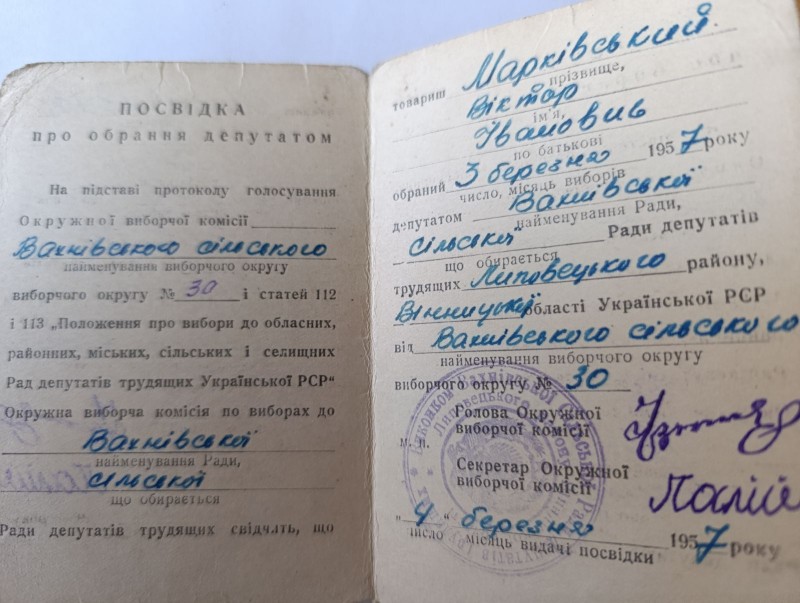 ПОСВІДКА
про обрання депутатом
На підставі протоколу голосування
Окружної виборчої комісії
Вахнівського сільського
найменування виборчого округу
виборчого округу № 30 і статей 112
і 113 „Положення про вибори до обласних,
районних, міських, сільських і селищних
Рад депутатів трудящих Української РСР"
Окружна виборча комісія по виборах до
Вахнівської
найменування Ради,
сільської
що обирається
Ради депутатів трудящих свідчать, що
товариш Марківський
прізвище,
Віктор
ім'я,
Іванович
по батькові
обраний 3 березня 1957 року
число, місяць виборів
депутатом Вахнівської
найменування Ради,
сільської Ради депутатів
що обирається
трудящих Липовецького району,
Вінницької області Української РСР
від Вахнівського сільського
найменування виборчого округу
виборчого округу № 30
Голова Окружної
виборчої комісії
м. п.
Секретар Окружної
виборчої комісії
Палій
„4" березня 1957 року
число місяць видачі посвідки